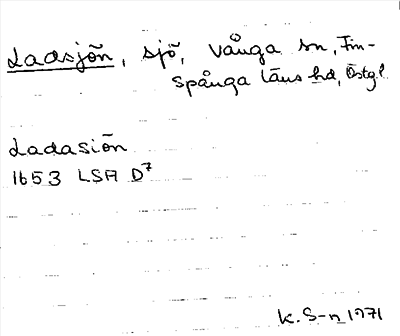 Ladsjön, sjö, Vånga sn, Fin-
spånga läns hd, Östgl.
Ladasiön
1653 LSA D7
K. S-n 1971